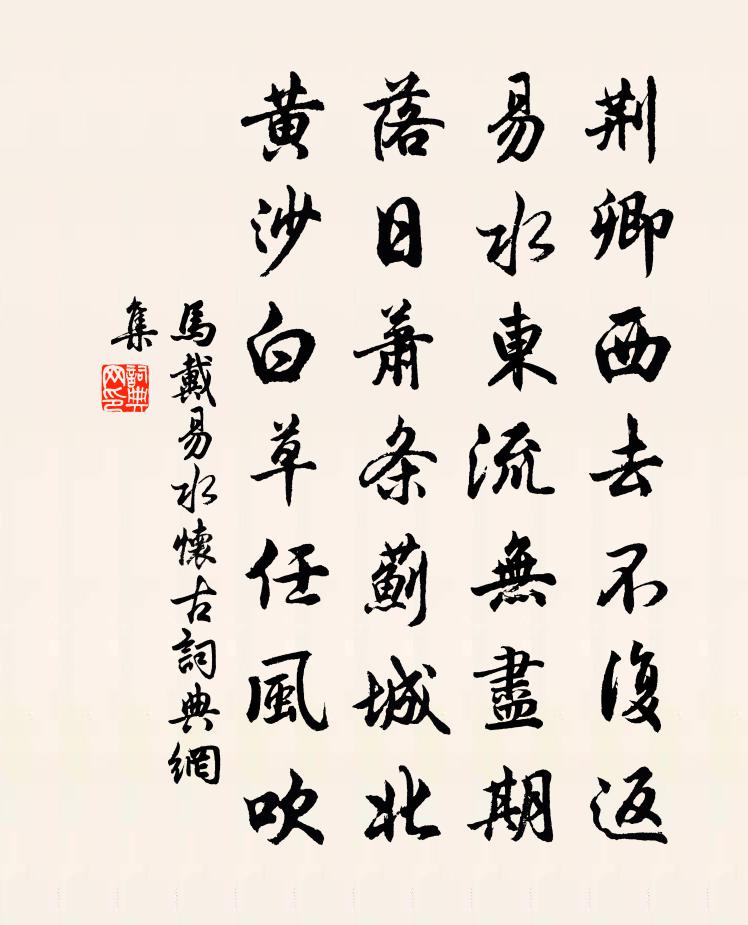 荆卿西去不復返
易水東流無盡期
落日蕭条薊城北
黄沙白草任風吹
馬戴易水懷古詞典網
集
詞典
网印